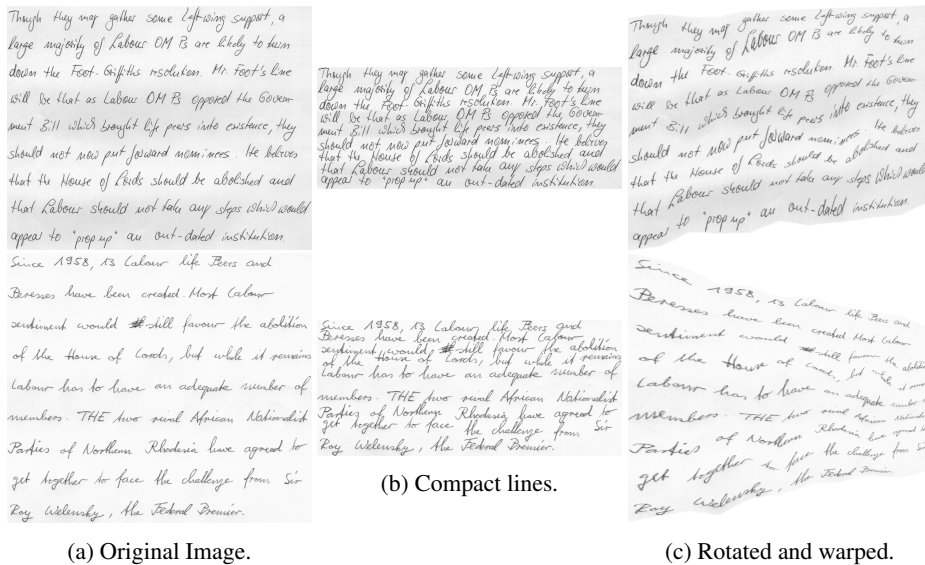 Though they may gather some Left-wing support, a
large majority of Labour OM Ps are likely to turn
down the Foot-Griffiths resolution. Mr. Foot's line
will be that as Labour OM Ps opposed the Govern-
ment Bill which brought life peers into existence, they
should not now put forward nominees. He believes
that the House of Lords should be abolished and
that Labour should not take any steps which would
appear to "prop up" an out-dated institution.
Since 1958, 13 Labour life Peers and
Peresses have been created. Most Labour
sentiment would still favour the abolition
of the House of Lords, but while it remains
Labour has to have an adequate number of
members. THE two rival African Nationalist
Parties of Northern Rhodesia have agreed to
get together to face the challenge from Sir
Roy Welensky, the Federal Premier.
(a) Original Image.
Though they may gather some Left-wing support, a
large majority of Labour OM Ps are likely to turn
down the Foot-Griffiths resolution. Mr. Foot's line
will be that as Labour OM Ps opposed the Govern-
ment Bill which brought life peers into existence, they
should not now put forward nominees. He believes
that the House of Lords should be abolished and
that Labour should not take any steps which would
appear to "prop up" an out-dated institution.
Since 1958, 13 Labour life Peers and
Peresses have been created. Most Labour
sentiment would still favour the abolition
of the House of Lords, but while it remains
Labour has to have an adequate number of
members. THE two rival African Nationalist
Parties of Northern Rhodesia have agreed to
get together to face the challenge from Sir
Roy Welensky, the Federal Premier.
(b) Compact lines.
Though they may gather some Left-wing support, a
large majority of Labour OM Ps are likely to turn
down the Foot-Griffiths resolution. Mr. Foot's line
will be that as Labour OM Ps opposed the Govern-
ment Bill which brought life peers into existence, they
should not now put forward nominees. He believes
that the House of Lords should be abolished and
that Labour should not take any steps which would
appear to "prop up" an out-dated institution.
Since 1958, 13 Labour life Peers and
Peresses have been created. Most Labour
sentiment would still favour the abolition
of the House of Lords, but while it
Labour has to have an adequate number
members. THE two rival African
Parties of Northern Rhodesia have agreed
get together to face the challenge from Sir
Roy Welensky, the Federal Premier.
(c) Rotated and warped.